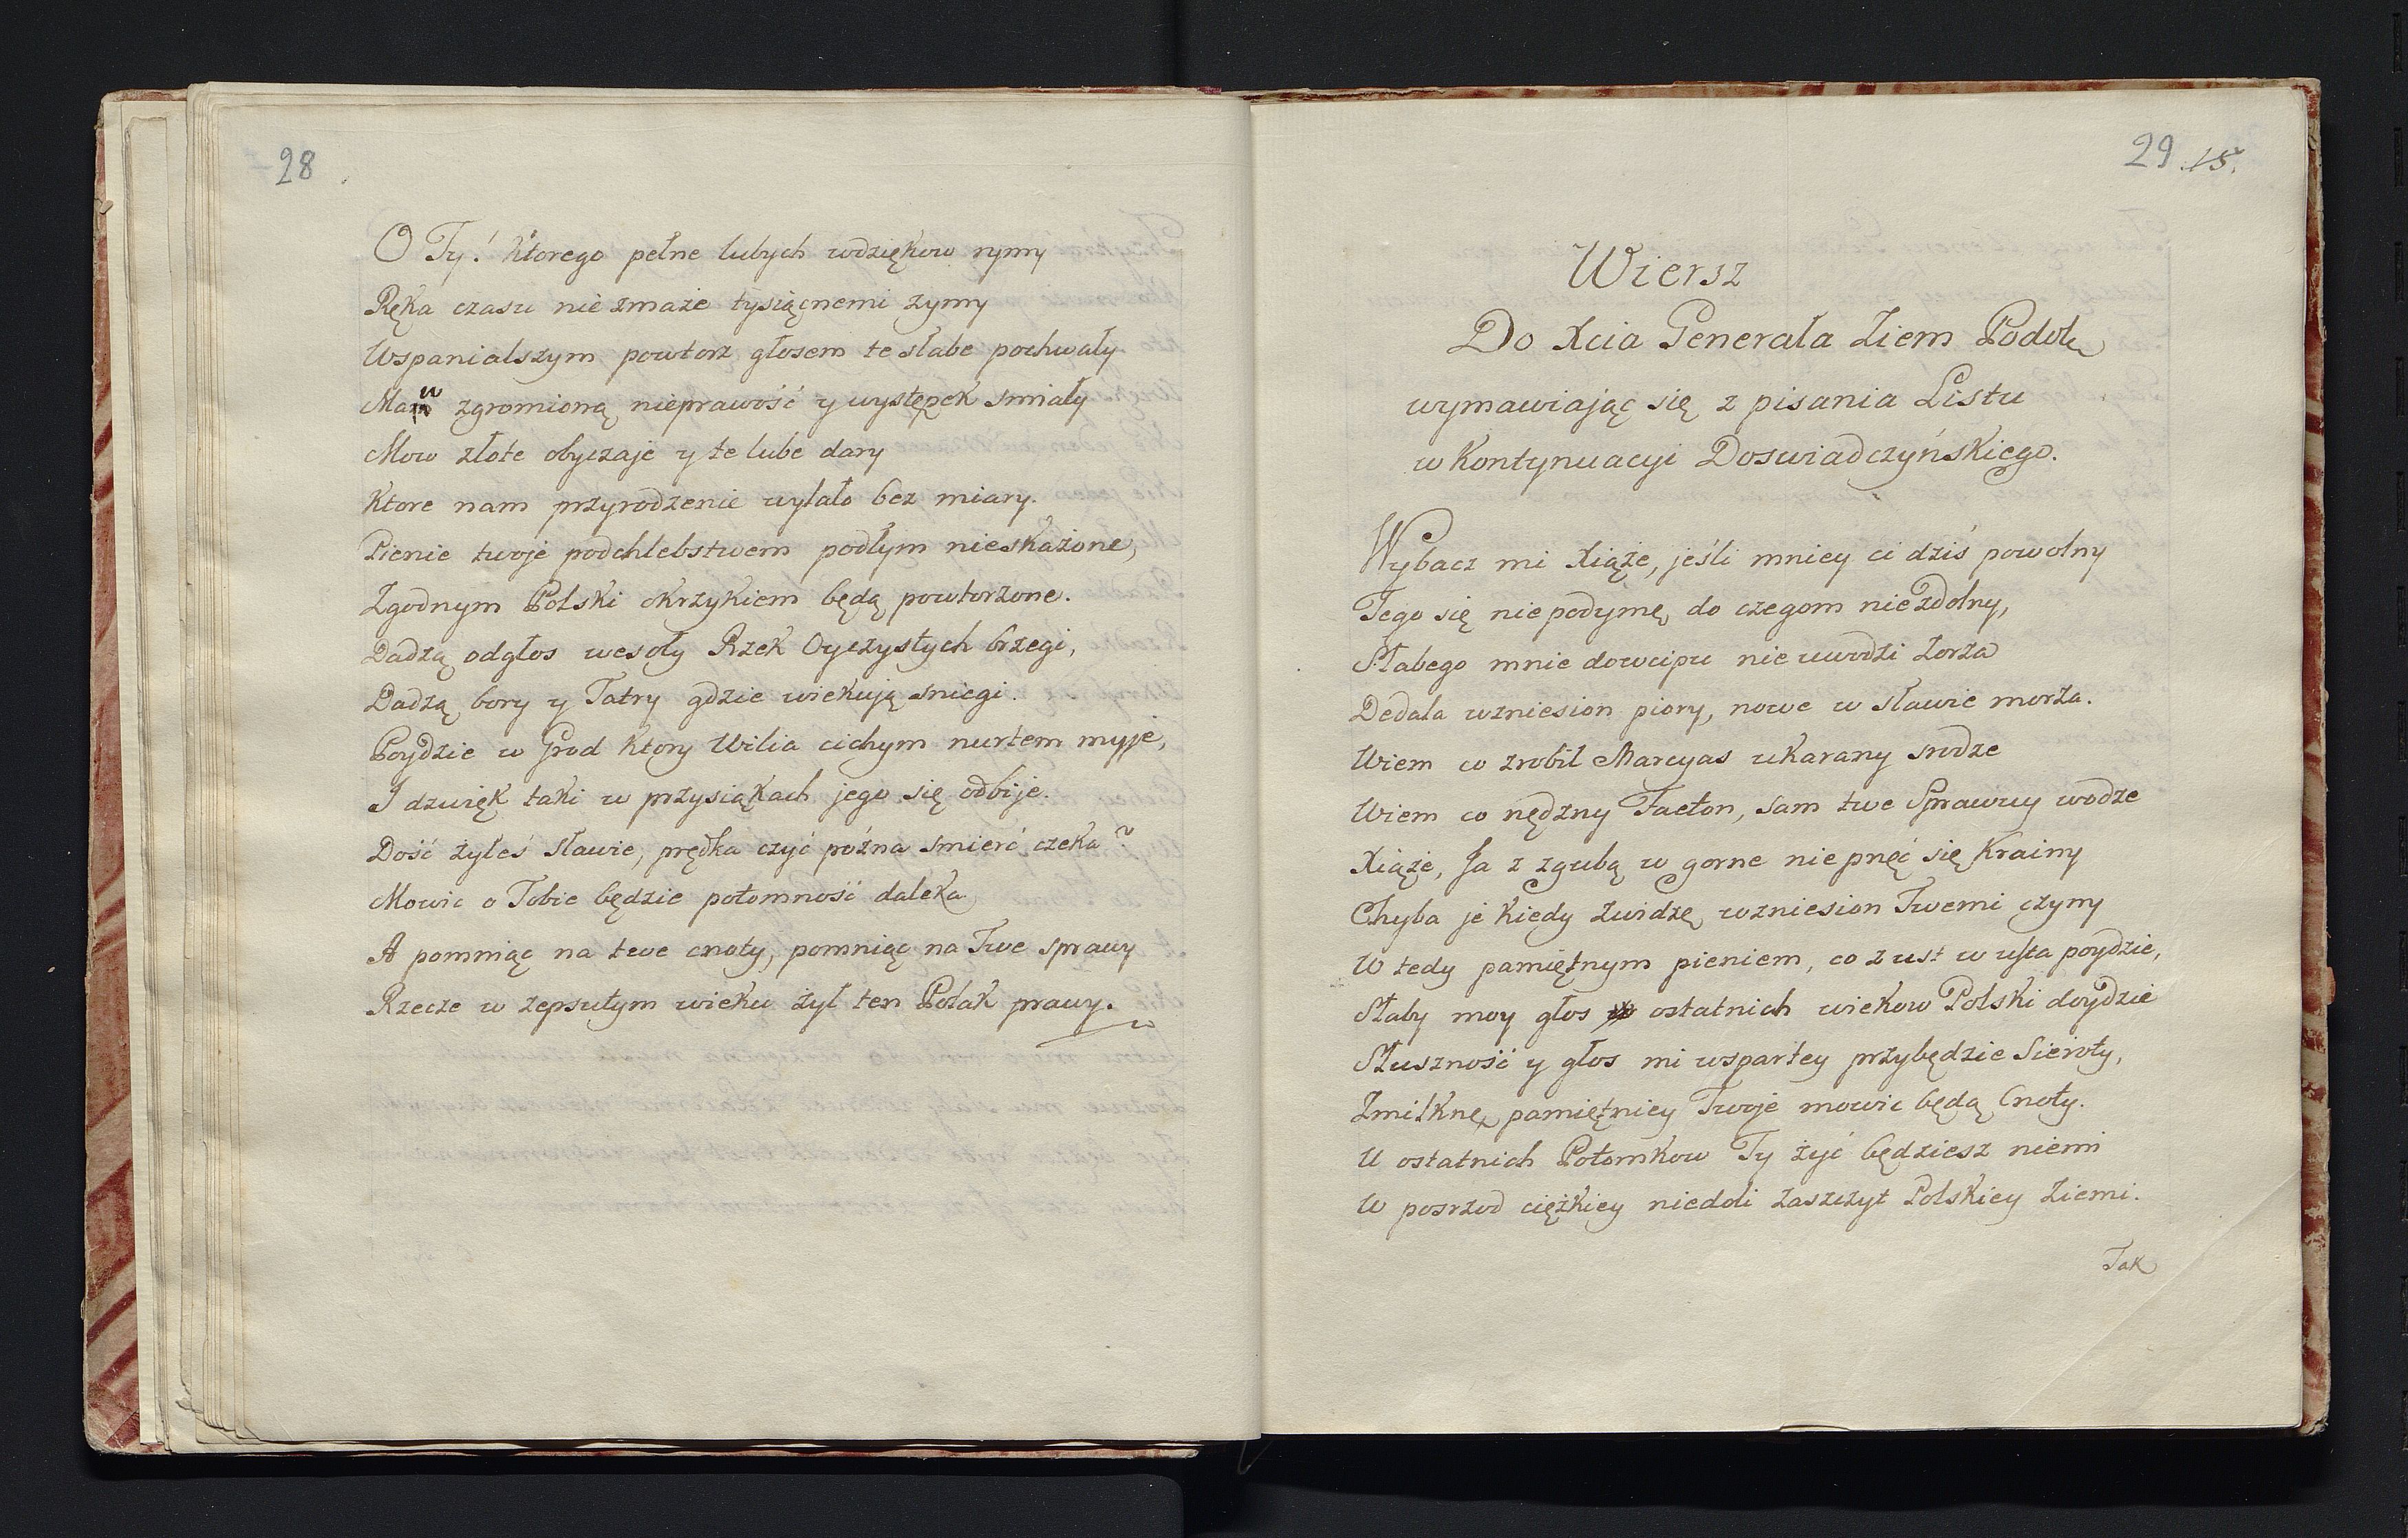 28
O Ty! ktorego pełne lubych wdziękow rymy
Ręka czasu nie zmaże tysiącnemi zymy
Wspanialszym powtorz głosem te słabe pochwały
zgromioną nieprawość y występek smiały
Mow złote obyczaje y te lube dary
Ktore nam przyrodzenie wylało bez miary.
Pienie twoje podchlebstwem podłym nieskażone,
Zgodnym Polski okrzykiem będą powtorzone.
Dadzą odgłos wesoły Rzek Oyczystych brzegi,
Dadzą bory y Tatry gdzie wiekują sniegi.
Poydzie w Grod ktory Wilia cichym nurtem myje,
I dzwięk taki w przysiąkach jego się odbije.
Dość żyłeś sławie, prędka czyć poźna smierć czeka?
Mowic o Tobie będzie potomność daleka
A pomniąc na twe cnoty, pomniąc na Twe sprawy
Rzecze w zepsutym wieku żył ten Polak prawy.
29 .15.
Wiersz
Do Xcia Generała Ziem Podol
wymawiając się z pisania Listu
w Kontynuacyi Doswiadczyńskiego.
Wybacz mi Xiąże, jeśli mniey ci dziś powolny
Tego się nie podymę, do czegom nie zdolny,
Słabego mnie dowcipu nie uwodzi zorza
Dedala wzniesion piory, nowe w sławie morza.
Wiem co zrobił Marcyas ukarany srodze
Wiem co nędzny Faeton, sam twe sprawuy wodze
Xiąże, Ja z zgubą w gorne nie pnęć się Krainy
Chyba je kiedy zwidzę wzniesion Twemi czyny
W tedy pamiętnym pieniem, co z ust w usta poydzie,
Słaby moy głos ostatnich wiekow Polski doydzie
Słuszność y głos mi wspartey przybędzie Sieroty,
Zmilknę, pamiętniey Twoje mowic będą Cnoty.
U ostatnich Potomkow Ty żyć będziesz niemi
W posrzod ciężkiey niedoli zaszczyt Polskiey Ziemi.
Tak